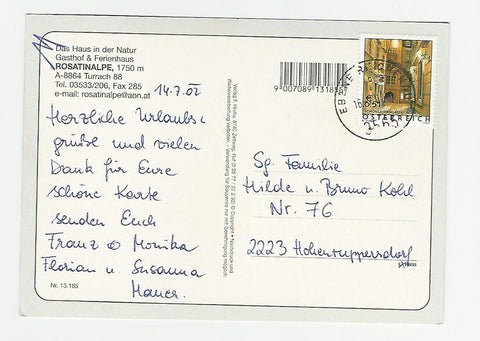 Das Haus in der Natur
Gasthof & Ferienhaus
ROSATINALPE, 1750 m
A-8864 Turrach 88
Tel. 03533/206, Fax 285
e-mail: rosatinalpe@aon.at
14.7.02
Herzliche Urlaubs-
grüße und vielen
Dank für Eure
schöne Karte
senden Euch
Franz & Monika
Florian u. Susanna
Maurer.
Nr. 13.185
9 007089 13185
ÖSTERREICH
Sg. Familie
Hilde u. Bruno Kohl
Nr. 76
2223 Hohenruppersdorf